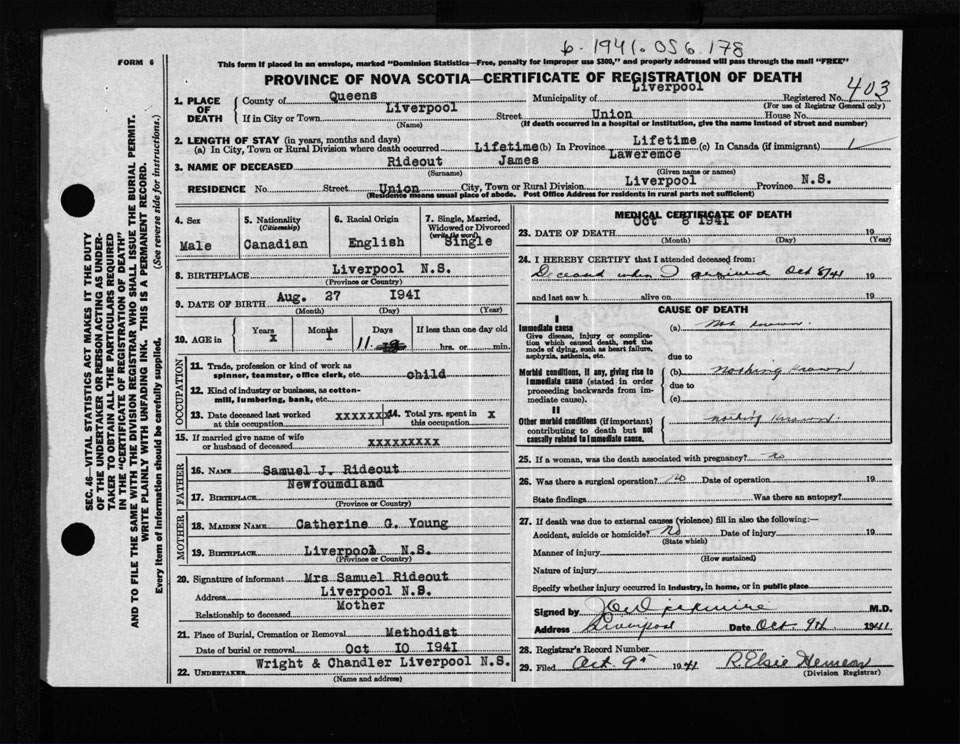 6-1941.OS6.178
FORM 6
This form if placed in an envelope, marked "Dominion Statistics—Free, penalty for improper use $300," and properly addressed will pass through the mail "FREE"
PROVINCE OF NOVA SCOTIA—CERTIFICATE OF REGISTRATION OF DEATH
SEC. 46—VITAL STATISTICS ACT MAKES IT THE DUTY
OF THE UNDERTAKER OR PERSON ACTING AS UNDER-
TAKER TO OBTAIN ALL THE PARTICULARS REQUIRED
IN THE "CERTIFICATE OF REGISTRATION OF DEATH"
AND TO FILE THE SAME WITH THE DIVISION REGISTRAR WHO SHALL ISSUE THE BURIAL PERMIT.
WRITE PLAINLY WITH UNFADING INK. THIS IS A PERMANENT RECORD.
Every item of Information should be carefully supplied. (See reverse side for instructions.)
1. PLACE OF DEATH
County of Queens Municipality of Liverpool Registered No. 403
(For use of Registrar General only)
If in City or Town Liverpool Street Union House No.
(Name) (If death occurred in a hospital or institution, give the name instead of street and number)
2. LENGTH OF STAY (in years, months and days)
(a) In City, Town or Rural Division where death occurred Lifetime (b) In Province Lifetime (c) In Canada (if immigrant)
3. NAME OF DECEASED Rideout James Lawerence
(Surname) (Given name or names)
RESIDENCE No. Street Union City, Town or Rural Division Liverpool Province N.S.
(Residence means usual place of abode. Post Office Address for residents in rural parts not sufficient)
4. Sex Male
5. Nationality (Citizenship) Canadian
6. Racial Origin English
7. Single, Married, Widowed or Divorced (write the word) Single
8. BIRTHPLACE Liverpool N.S.
(Province or Country)
9. DATE OF BIRTH Aug. 27 1941
(Month) (Day) (Year)
10. AGE in Years x Months 1 Days 11 If less than one day old
hrs. or min.
OCCUPATION
11. Trade, profession or kind of work as
spinner, teamster, office clerk, etc. child
12. Kind of industry or business, as cotton-
mill, lumbering, bank, etc.
13. Date deceased last worked
at this occupation xxxxxxx
14. Total yrs. spent in
this occupation x
15. If married give name of wife
or husband of deceased xxxxxxxxx
FATHER
16. NAME Samuel J. Rideout
17. BIRTHPLACE Newfoumdland
(Province or Country)
MOTHER
18. MAIDEN NAME Catherine G. Young
19. BIRTHPLACE Liverpool N.S.
(Province or Country)
20. Signature of informant Mrs Samuel Rideout
Address Liverpool N.S.
Relationship to deceased Mother
21. Place of Burial, Cremation or Removal Methodist
Date of burial or removal Oct 10 1941
22. UNDERTAKER Wright & Chandler Liverpool N.S.
(Name and address)
MEDICAL CERTIFICATE OF DEATH
23. DATE OF DEATH Oct 8 1941 19
(Month) (Day) (Year)
24. I HEREBY CERTIFY that I attended deceased from:
Deceased when I arrived Oct 8/41 19
and last saw h alive on 19
CAUSE OF DEATH
I
Immediate cause
Give disease, injury or complica-
tion which caused death, not the
mode of dying, such as heart failure,
asphyxia, asthenia, etc.
(a) Not known
due to
Morbid conditions, if any, giving rise to
immediate cause (stated in order
proceeding backwards from im-
mediate cause).
(b) Nothing known
due to
(c)
II
Other morbid conditions (if important)
contributing to death but not
causally related to immediate cause.
Nothing Known
25. If a woman, was the death associated with pregnancy? No
26. Was there a surgical operation? No Date of operation 19
State findings Was there an autopsy?
27. If death was due to external causes (violence) fill in also the following:—
Accident, suicide or homicide? No Date of injury 19
(State which)
Manner of injury
(How sustained)
Nature of injury
Specify whether injury occurred in industry, in home, or in public place
Signed by M.D.
Address Liverpool Date Oct. 9th 1941
28. Registrar's Record Number
29. Filed Oct. 9th 1941 R. Elsie Hemeon
(Division Registrar)